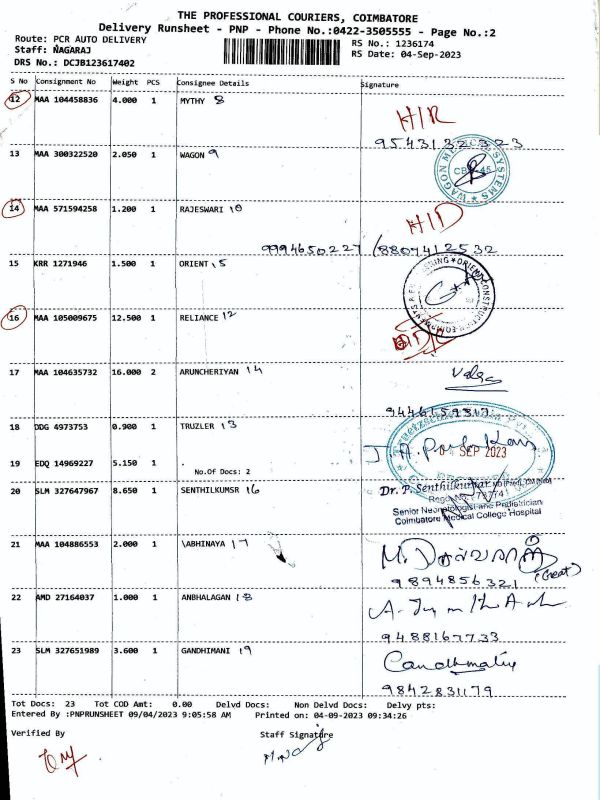 THE PROFESSIONAL COURIERS, COIMBATORE
Delivery Runsheet - PNP - Phone No.:0422-3505555 - Page No.:2
Route: PCR AUTO DELIVERY
RS No.: 1236174
Staff: NAGARAJ
RS Date: 04-Sep-2023
DRS No.: DCJB123617402
S No Consignment No Weight PCS Consignee Details Signature
12 MAA 104458836 4.000 1 MYTHY 8
13 MAA 300322520 2.050 1 WAGON 9
14 MAA 571594258 1.200 1 RAJESWARI 10
9994650227 / 8807412532
15 KRR 1271946 1.500 1 ORIENT 15
16 MAA 105009675 12.500 1 RELIANCE 12
17 MAA 104635732 16.000 2 ARUNCHERIYAN 14
18 DDG 4973753 0.900 1 TRUZLER 13
SEP 2023
19 EDQ 14969227 5.150 1
No.Of Docs: 2
20 SLM 327647967 8.650 1 SENTHILKUMSR 16
Dr. P. Senthilkumar
Senior Neonatologist and Pediatrician
Coimbatore Medical College Hospital
21 MAA 104886553 2.000 1 \ABHINAYA 17
9894856321
22 AMD 27164037 1.000 1 ANBHALAGAN 18
9488167733
23 SLM 327651989 3.600 1 GANDHIMANI 19
9842831179
Tot Docs: 23 Tot COD Amt: 0.00 Delvd Docs: Non Delvd Docs: Delvy pts:
Entered By :PNPRUNSHEET 09/04/2023 9:05:58 AM Printed on: 04-09-2023 09:34:26
Verified By Staff Signature